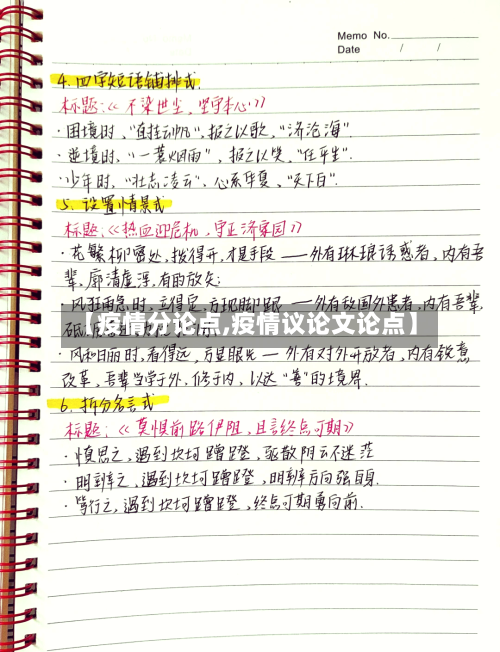 Memo No.
Date / /
4. 四字短语铺排式
标题:《不染世尘,坚守本心》
·困境时,"直挂云帆",报之以歌,"济沧海".
·逆境时,"一蓑烟雨",报之以笑,"任平生".
·少年时,"壮志凌云",心系华夏,"天下白".
5. 设置情景式
标题:《热血迎危机,守正济家国》
·花繁柳密处,拨得开,才是手段——外有琳琅诱惑者,内有吾
辈,廓清虚浮,有的放矢;
·风狂雨急时,立得定,方现脚跟——外有敌国外患者,内有吾辈,
【疫情分论点,疫情议论文论点】
·风和日丽时,看得远,方显眼光——外有对外开放者,内有锐意
改革,吾辈当学于外,修于内,以达"善"的境界.
6. 拆分名言式
标题:《莫惧前路伊阻,且言终点可期》
·慎思之,遇到坎坷蹭蹬,驱散阴云不迷茫
·明辨之,遇到坎坷蹭蹬,明辨方向强自身.
·笃行之,遇到坎坷蹭蹬,终点可期勇向前.